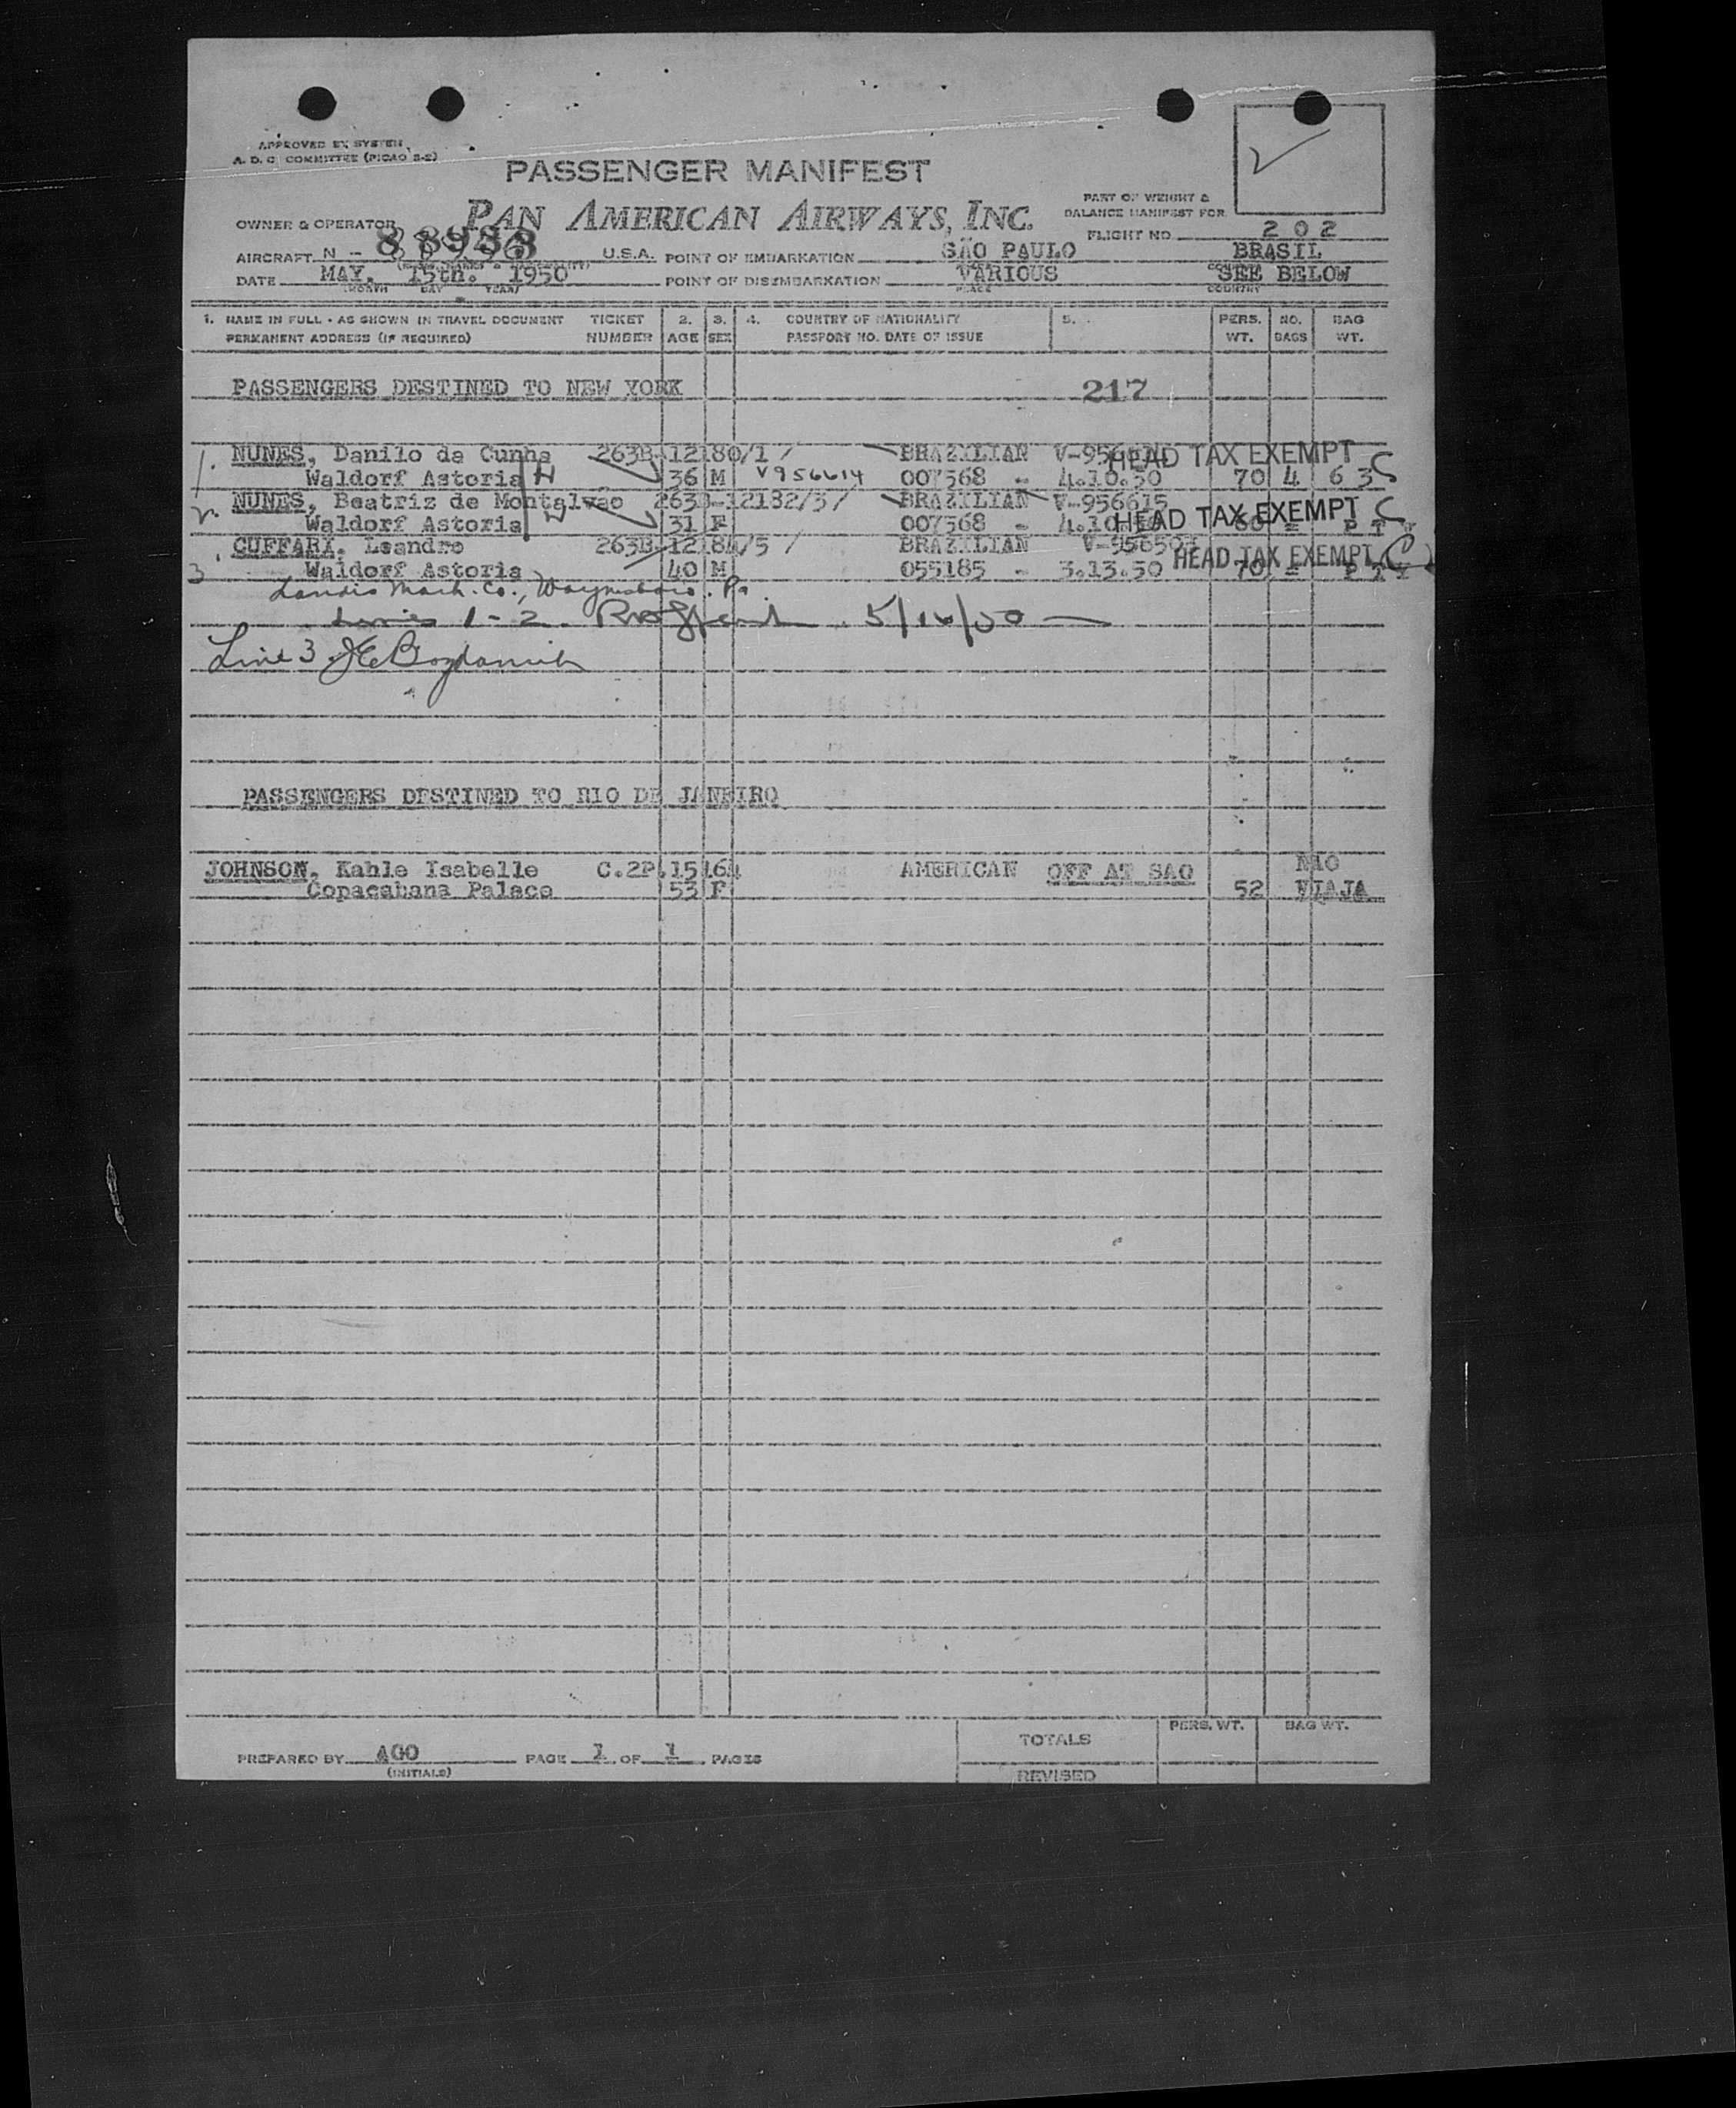 APPROVED BY SYSTEM
A. D. C. COMMITTEE (PICAO S-2)
PASSENGER MANIFEST
PAN AMERICAN AIRWAYS, INC.
PART OF WEIGHT &
BALANCE MANIFEST FOR
OWNER & OPERATOR
FLIGHT NO. 202
AIRCRAFT N - U.S.A. POINT OF EMBARKATION SÃO PAULO BRASIL
DATE MAY. 15th. 1950 POINT OF DISEMBARKATION VARIOUS SEE BELOW
MONTH DAY YEAR PLACE COUNTRY
1. NAME IN FULL - AS SHOWN IN TRAVEL DOCUMENT TICKET 2. 3. 4. COUNTRY OF NATIONALITY 5. PERS. NO. BAG
PERMANENT ADDRESS (IF REQUIRED) NUMBER AGE SEX PASSPORT NO. DATE OF ISSUE WT. BAGS WT.
PASSENGERS DESTINED TO NEW YORK 217
1. NUNES, Danilo da Cunha 263B-12180/1 / BRAZILIAN HEAD TAX EXEMPT
Waldorf Astoria 36 M V956614 007568 - 4.10.50 70 4 63
2. NUNES, Beatriz de Montalvão 263B-12182/3 / BRAZILIAN V-956615
Waldorf Astoria 31 F 007568 - HEAD TAX EXEMPT
CUFFARI, Leandro 263B-12184/5 / BRAZILIAN
3 Waldorf Astoria 40 M 055185 - 3.13.50 HEAD TAX EXEMPT 70
Landis Mach. Co., Waynesboro, Pa.
Lines 1-2 5/16/50
Line 3
PASSENGERS DESTINED TO RIO DE JANEIRO
JOHNSON, Kahle Isabelle C.2P.15164 AMERICAN OFF AT SAO NÃO
Copacabana Palace 53 F 52 VIAJA
TOTALS PERS. WT. BAG WT.
PREPARED BY AGO PAGE 1 OF 1 PAGES
(INITIALS) REVISED